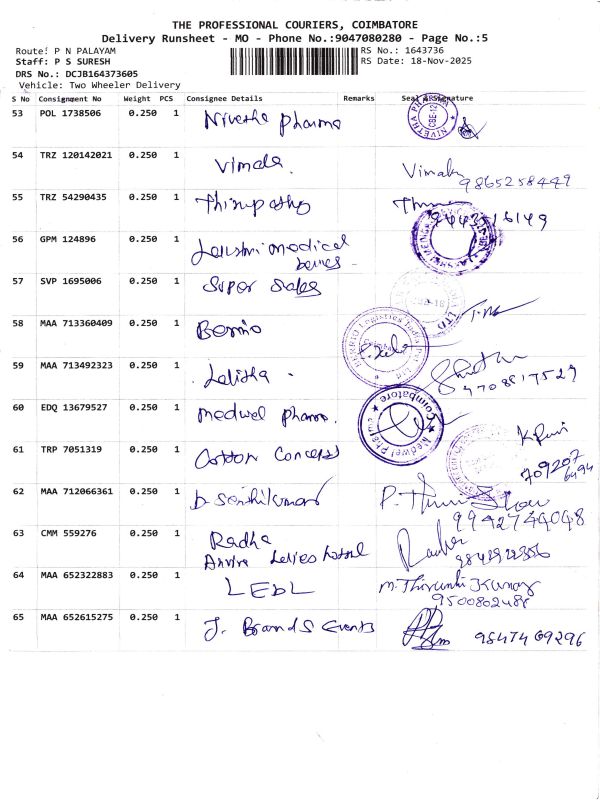 THE PROFESSIONAL COURIERS, COIMBATORE
Delivery Runsheet - MO - Phone No.:9047080280 - Page No.:5
Route: P N PALAYAM RS No.: 1643736
Staff: P S SURESH RS Date: 18-Nov-2025
DRS No.: DCJB164373605
Vehicle: Two Wheeler Delivery
S No Consignment No Weight PCS Consignee Details Remarks Seal & Signature
53 POL 1738506 0.250 1 Nivetha pharma NIVETHA PHARMA CBE-12
54 TRZ 120142021 0.250 1 Vimala. Vimala
9865258449
55 TRZ 54290435 0.250 1 Thirupathy
56 GPM 124896 0.250 1 Lakshmi medical
57 SVP 1695006 0.250 1 Super Sales
58 MAA 713360409 0.250 1 Logistics India Pvt Ltd
59 MAA 713492323 0.250 1 Lalitha.
9708817529
60 EDQ 13679527 0.250 1 medwel pharma. Medwel Coimbatore
61 TRP 7051319 0.250 1 Cotton Concept
709207
62 MAA 712066361 0.250 1 D Senthilkumar P.
9942744048
63 CMM 559276 0.250 1 Radha
64 MAA 652322883 0.250 1 LEBL
9500802488
65 MAA 652615275 0.250 1 J. Brands Events 9847469296